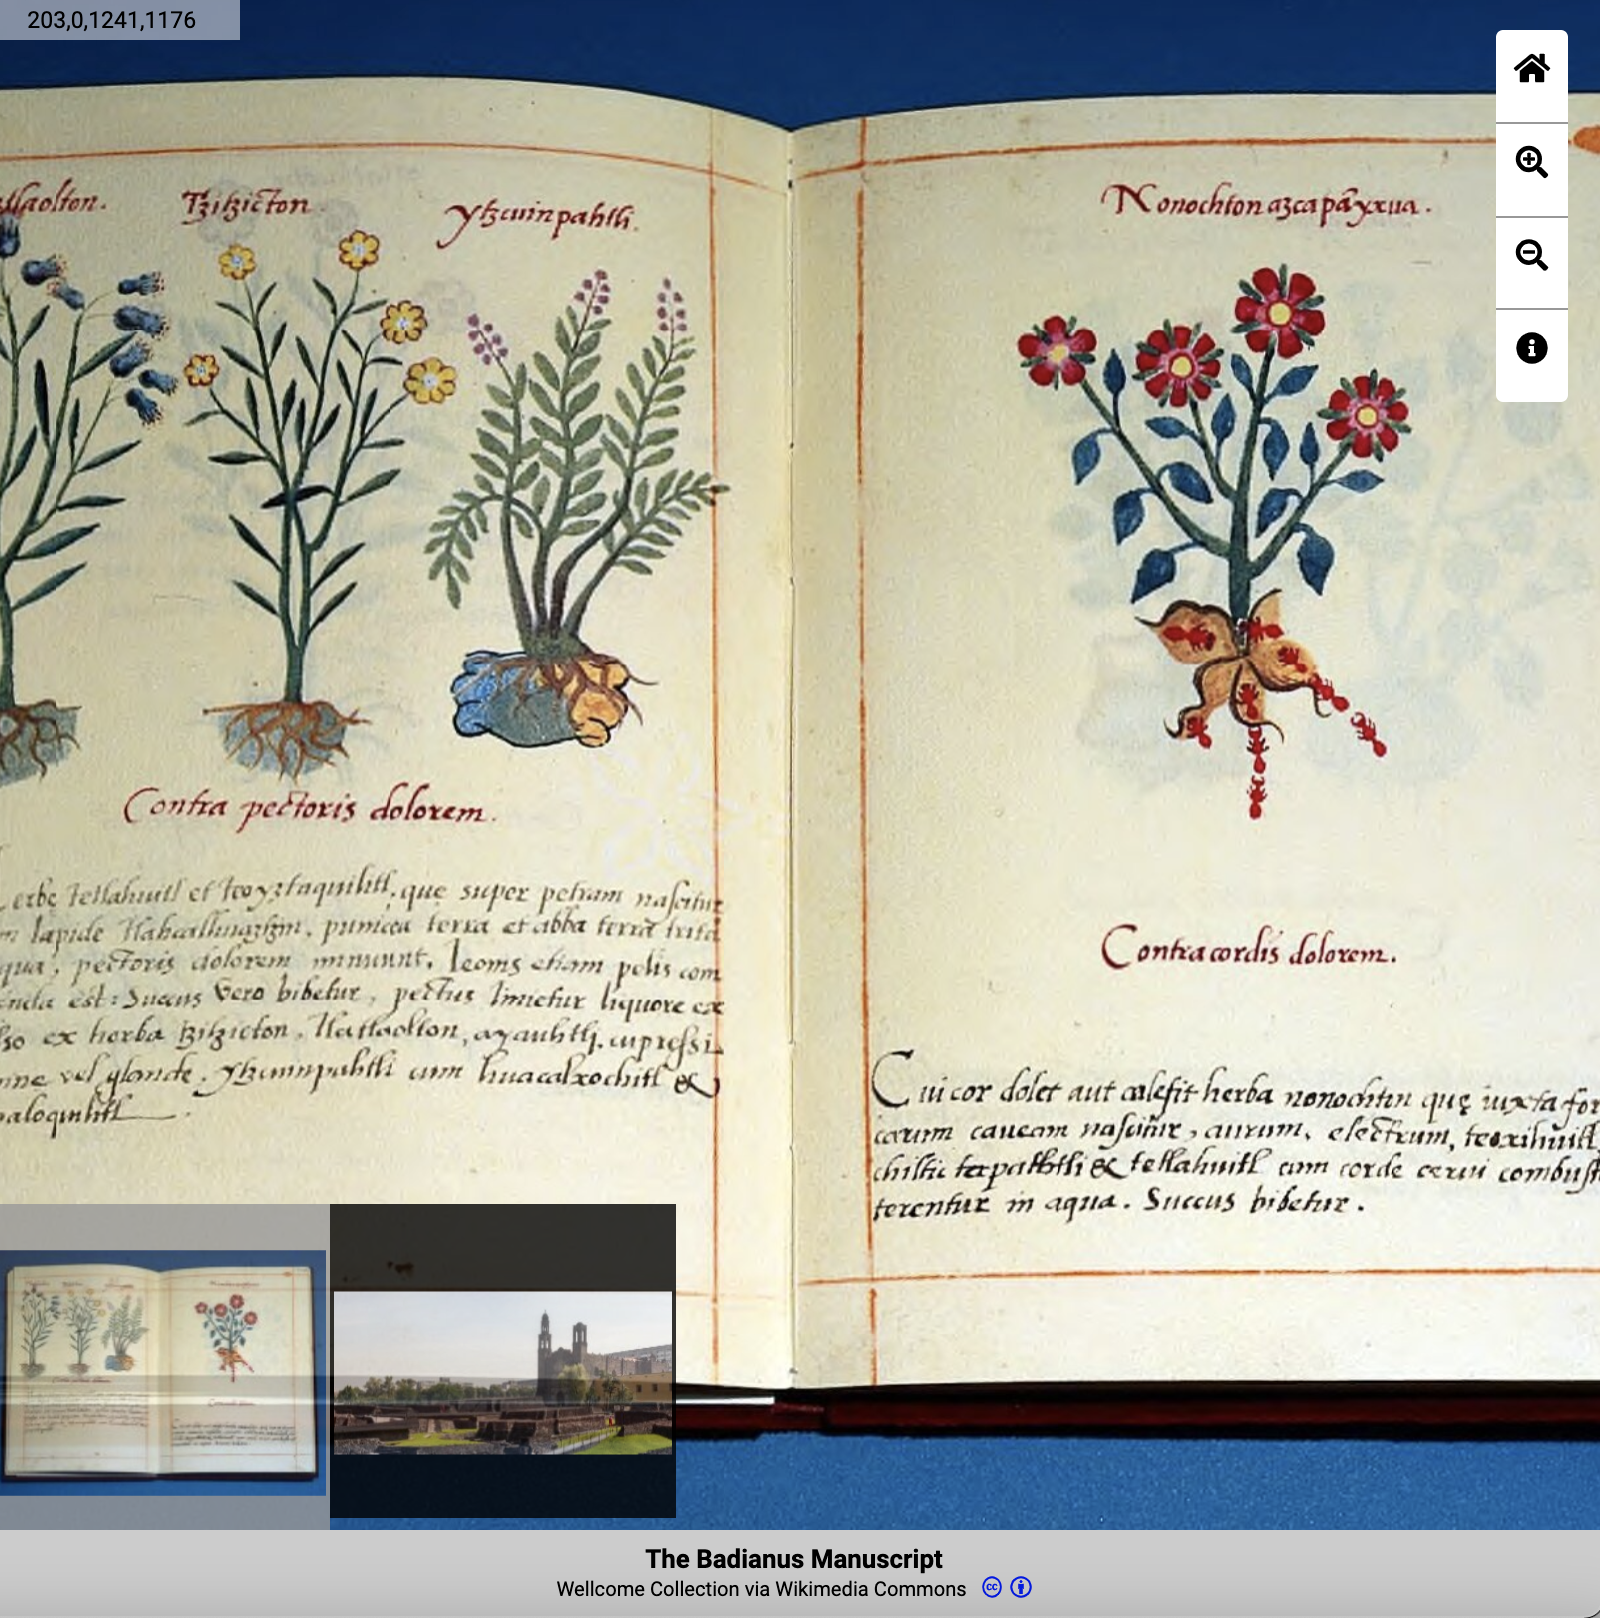 203,0,1241,1176
Tzitzicton
ytzcuinpahtli.
Contra pectoris dolorem.
tetlahuitl et teoyztaquilitl, que super petram nascitur
lapide punicea terra et abba terra trita
qua, pectoris dolorem minuunt. leonis etiam pelis com
est: Succus vero bibetur, pectus linietur liquore ex
so ex herba tzitzicton, tlatlaolton, ayauhtli, cupressi
vel glande. ytzcuinpahtli cum huacalxochitl &
Nonochton azcapãyxua.
Contra cordis dolorem.
Cui cor dolet aut calefit herba nonochton que iuxta for
carum caveam nascitur, aurum, electrum, teoxihuitl,
chiltic tecpahtli & tetlahuitl cum corde cervi combust
terentur in aqua. Succus bibetur.
The Badianus Manuscript
Wellcome Collection via Wikimedia Commons